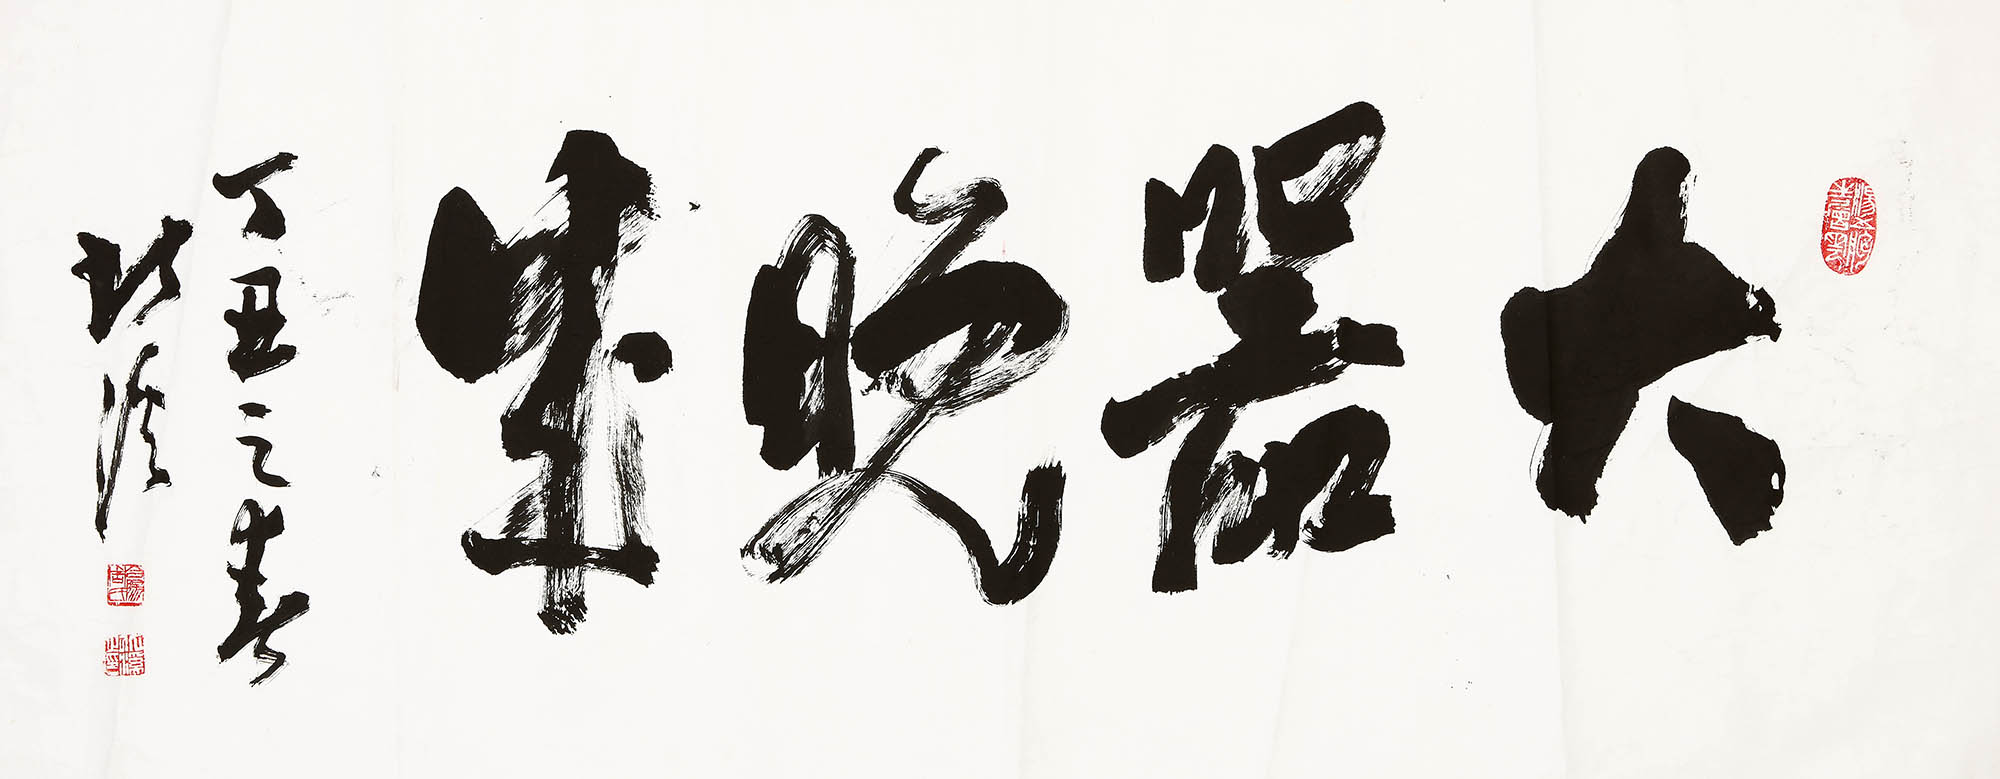 大器晚成
丁丑之春